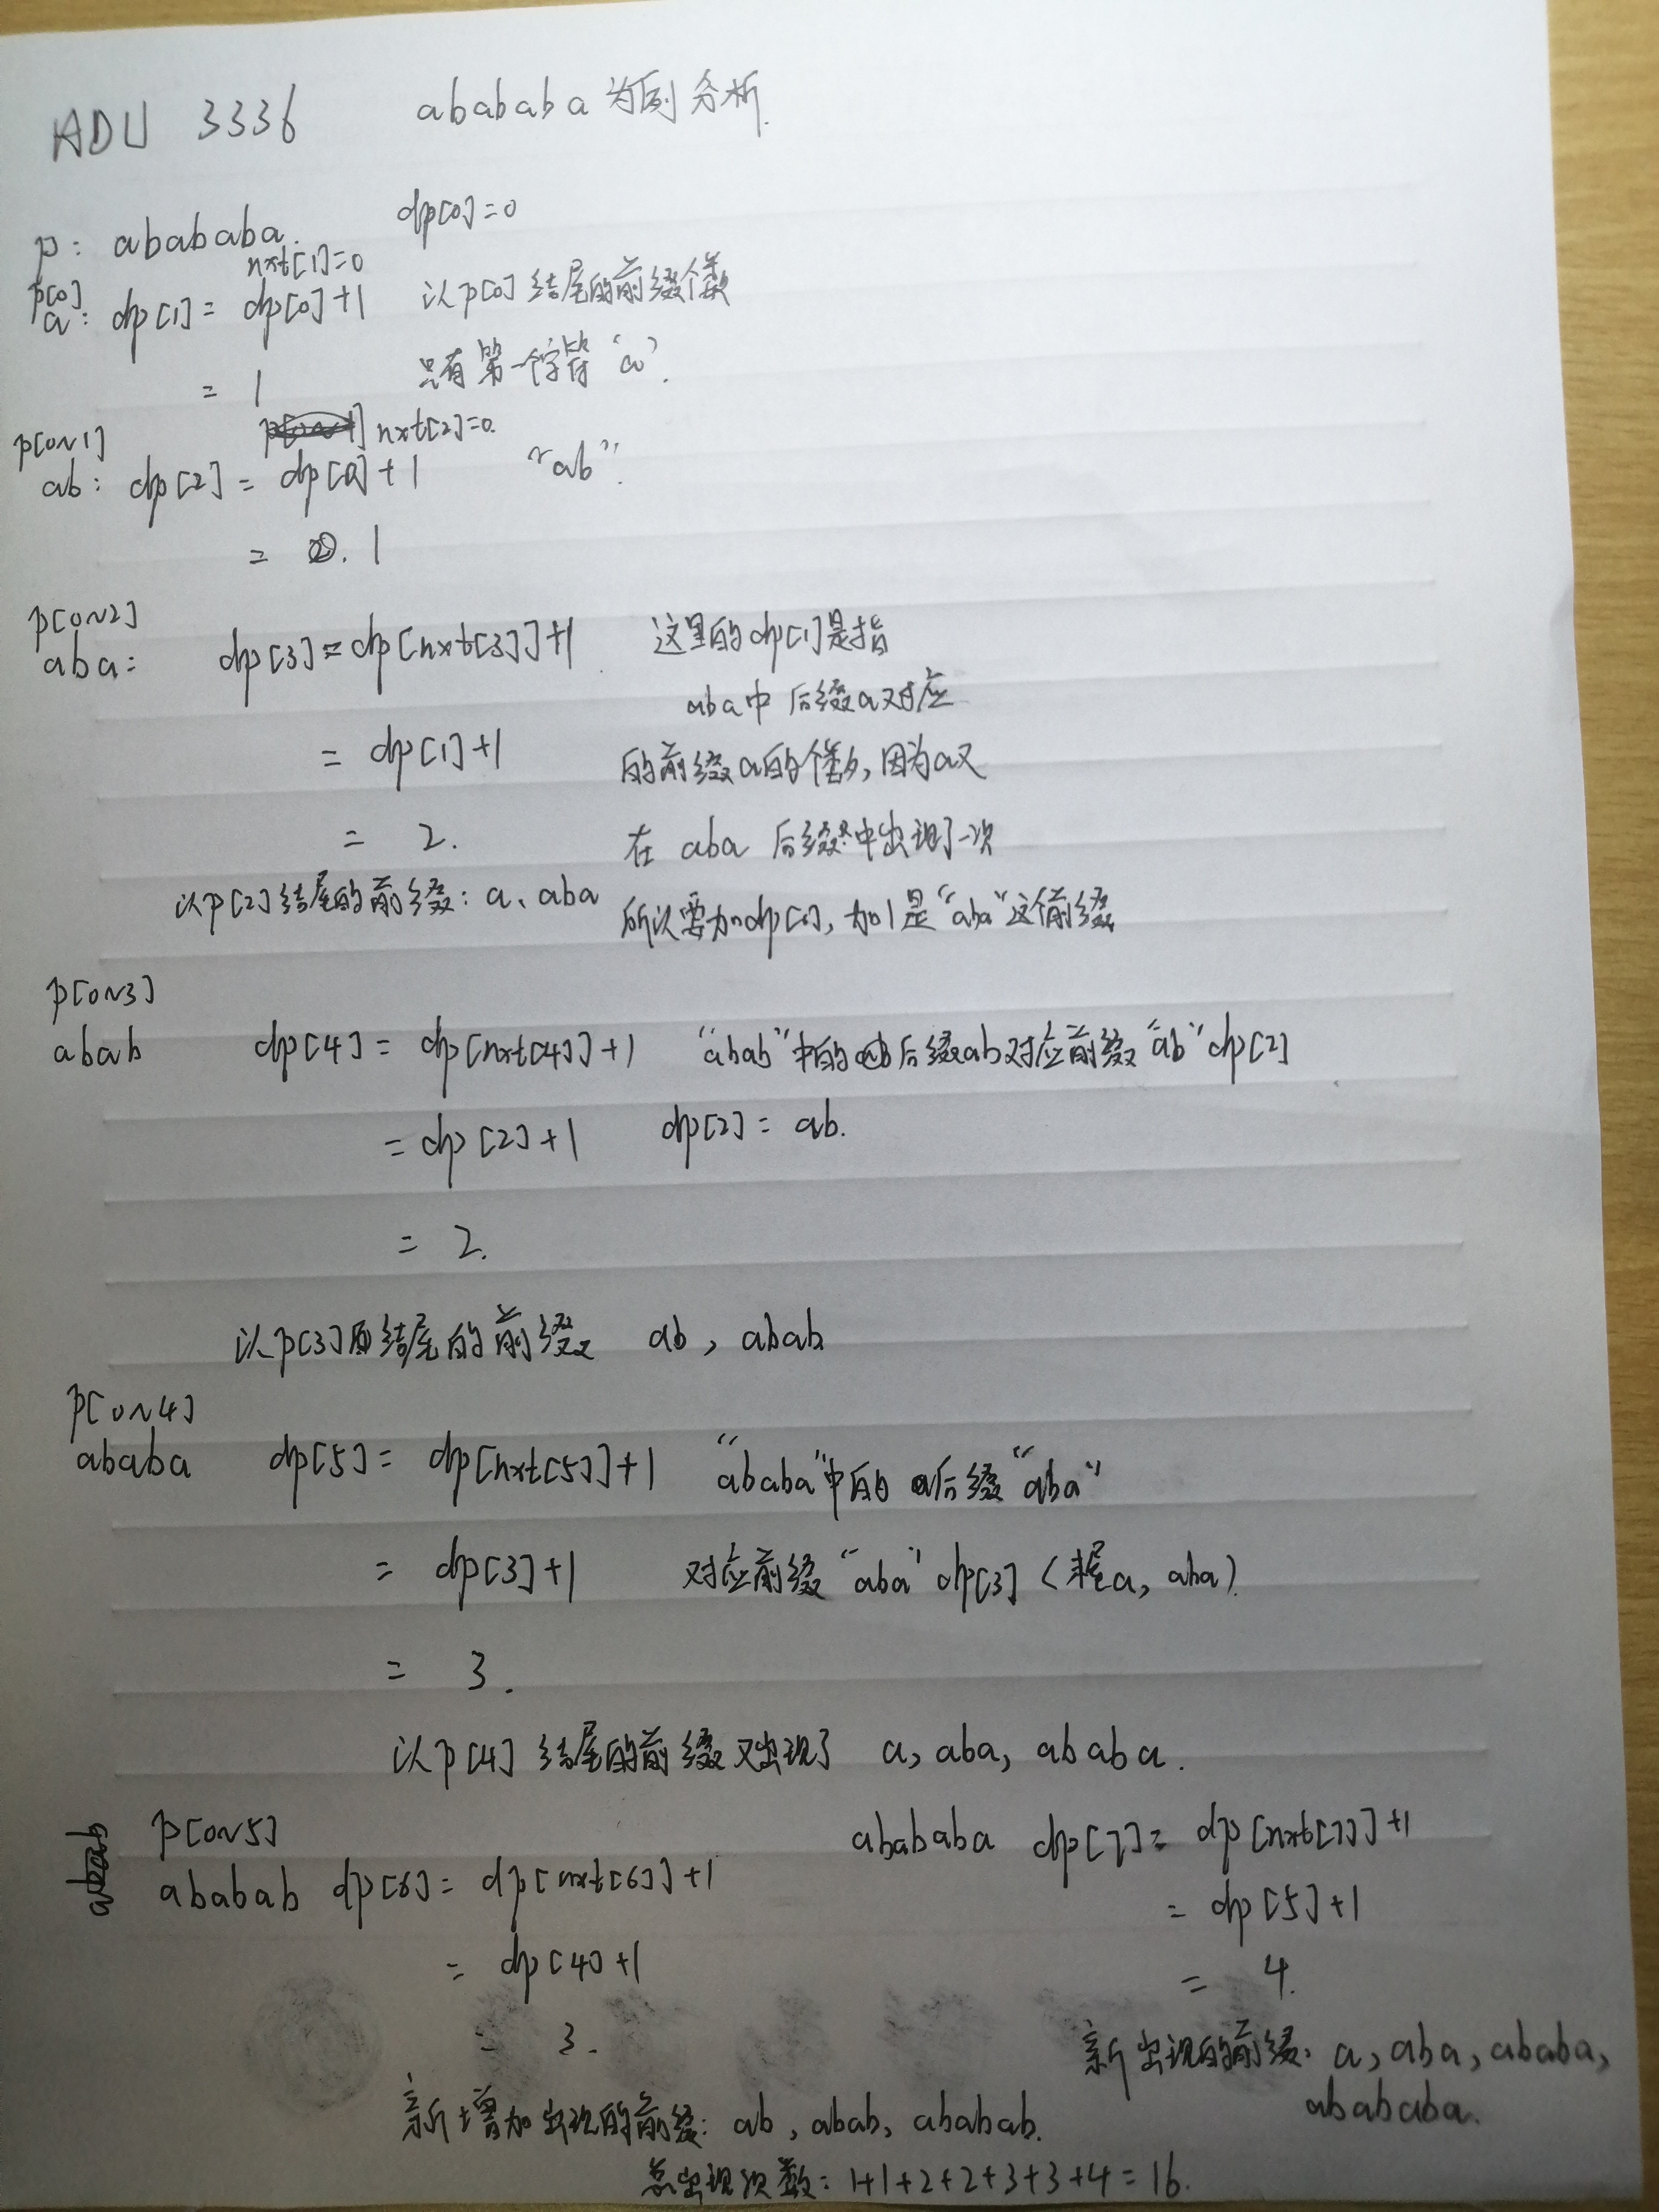 ADU 3336 abababa为例分析.
p: abababa. dp[0]=0
nxt[1]=0
p[0]
a: dp[1]= dp[0]+1 以p[0]结尾的前缀个数
= 1 只有第一个字符'a'.
p[0~1] nxt[2]=0.
ab: dp[2]= dp[0]+1 "ab".
= 1
p[0~2]
aba: dp[3]=dp[nxt[3]]+1 这里的dp[1]是指
aba中后缀a对应
= dp[1]+1 的前缀a的个数,因为a又
= 2. 在 aba 后缀中出现了一次
以p[2]结尾的前缀: a、aba 所以要加dp[1],加1是"aba"这个前缀
p[0~3]
abab dp[4]= dp[nxt[4]]+1 "abab"中的后缀ab对应前缀"ab"dp[2]
= dp[2]+1 dp[2]= ab.
= 2.
以p[3]结尾的前缀 ab, abab
p[0~4]
ababa dp[5]= dp[nxt[5]]+1 "ababa"中的后缀"aba"
= dp[3]+1 对应前缀"aba"dp[3] (a, aba)
= 3.
以p[4]结尾的前缀又出现了 a, aba, ababa.
p[0~5] abababa dp[7]= dp[nxt[7]]+1
ababab dp[6]= dp[nxt[6]]+1
= dp[5]+1
= dp[4]+1
= 4.
= 3.
新出现的前缀: a, aba, ababa,
abababa.
新增加出现的前缀: ab, abab, ababab.
总出现次数: 1+1+2+2+3+3+4=16.